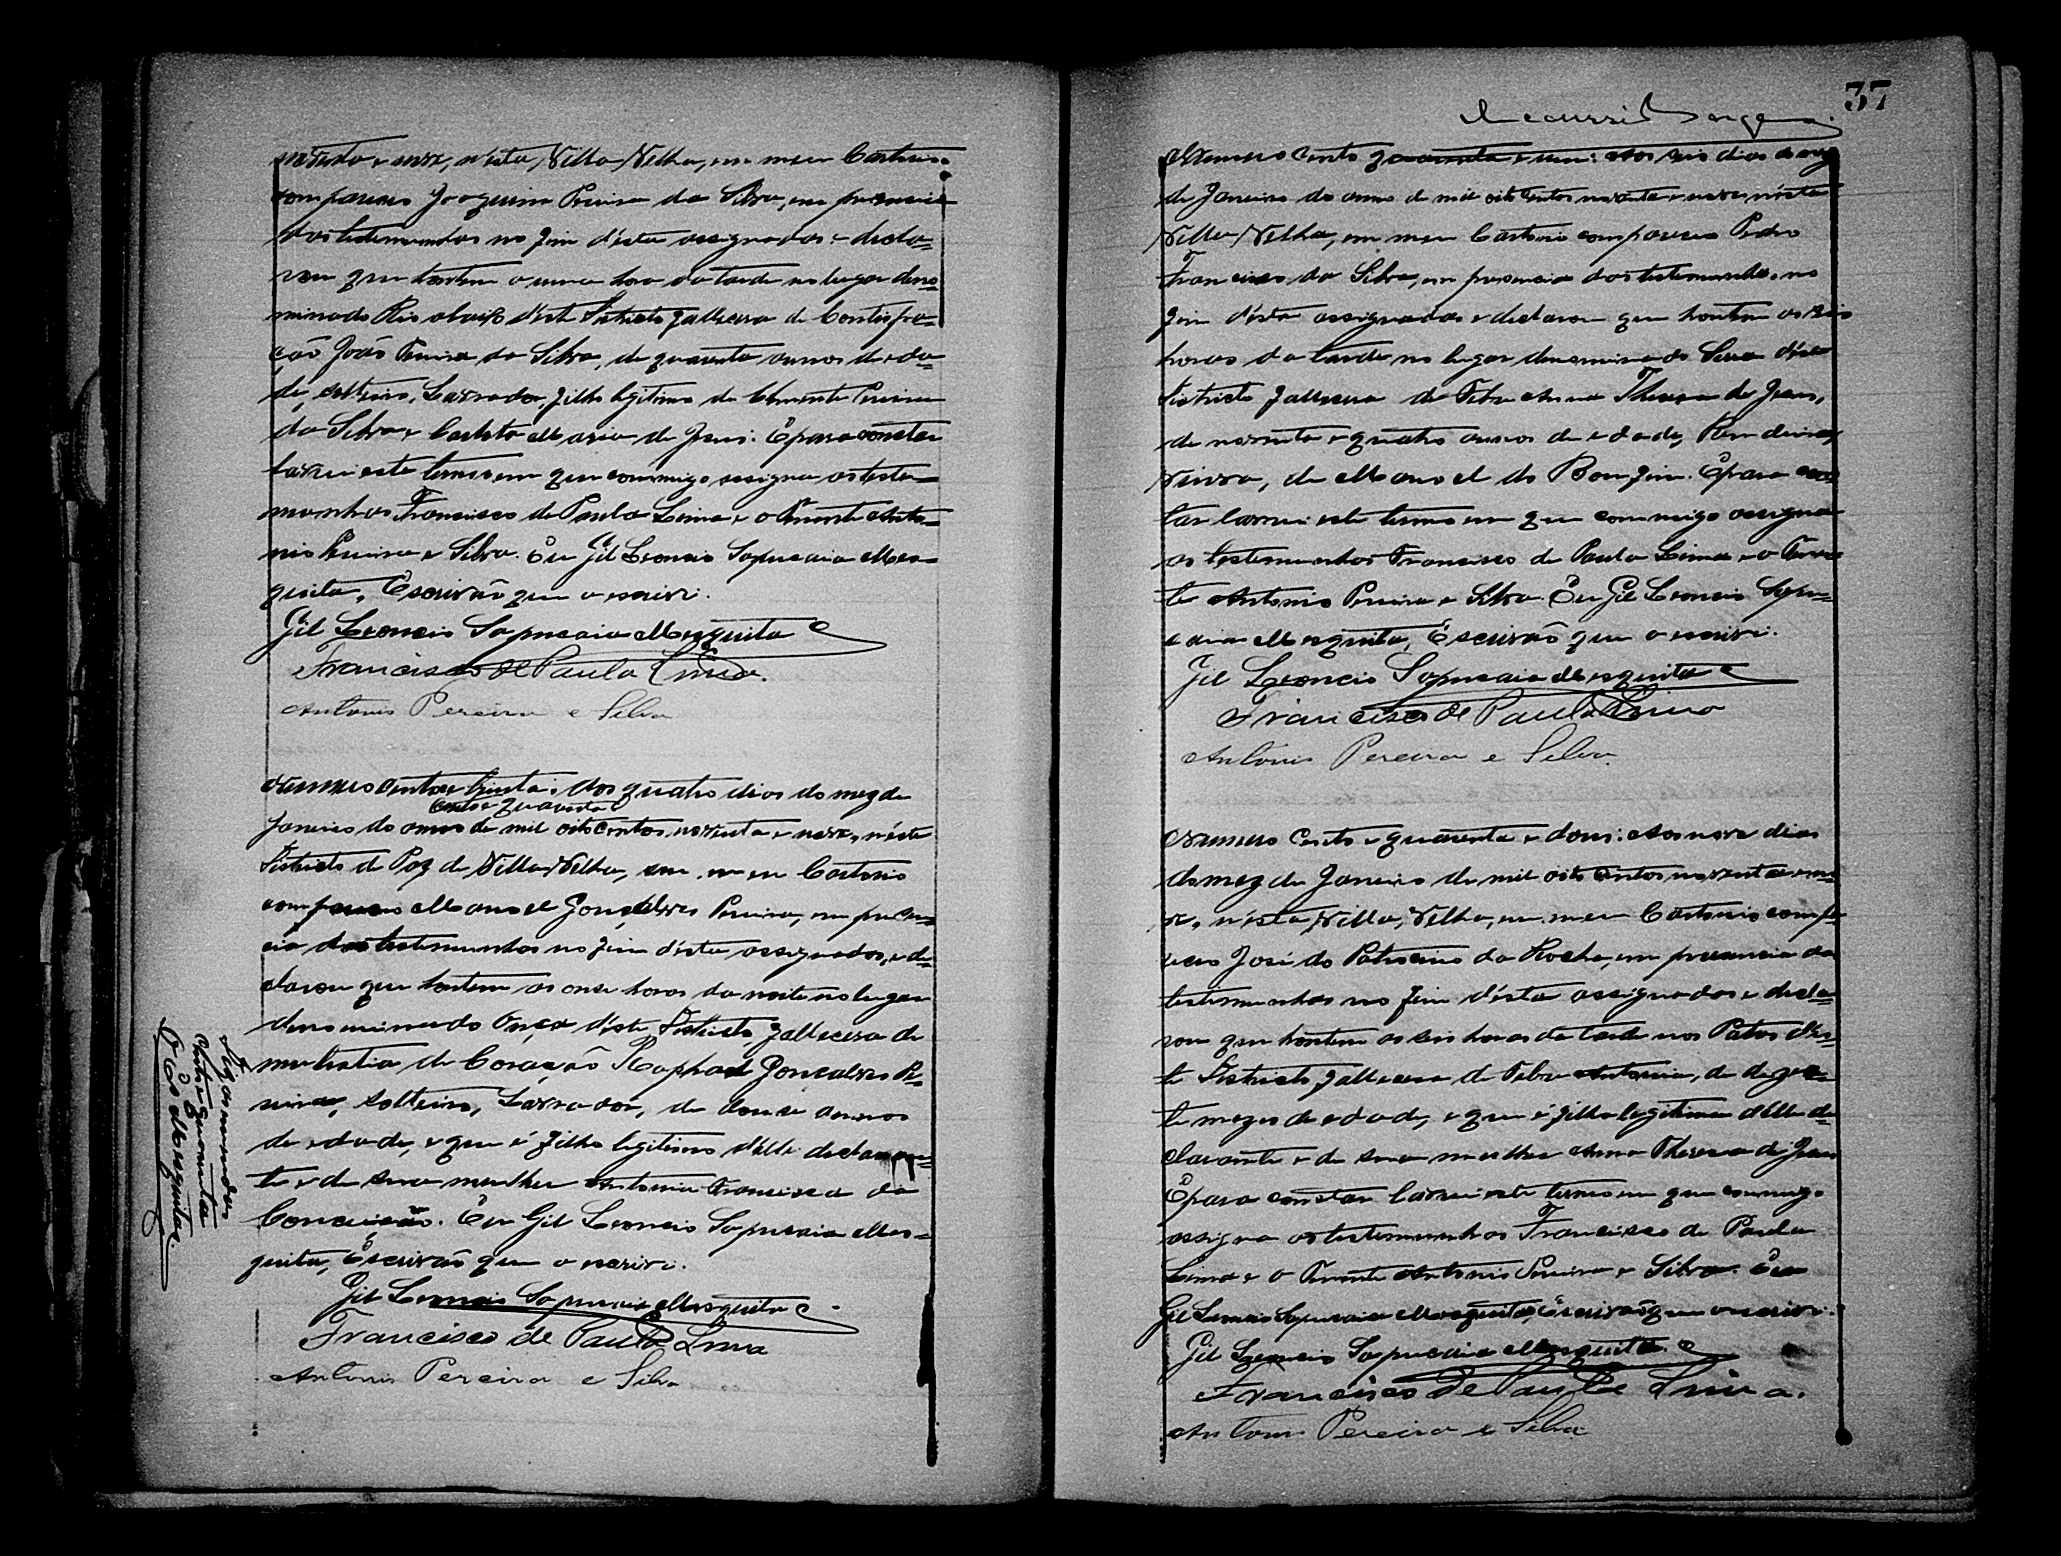 noventa e nove, n'esta Villa Velha, em meu Cartorio
compareceu Joaquim Pereira da Silva, em presencia
das testemunhas no fim d'esta assignadas e decla-
rou que hontem a uma hora da tarde no lugar deno-
minado Rio abaixo d'este Districto falleceu de
João Pereira da Silva, de quarenta annos de eda-
de, solteiro, Lavrador, filho legitimo de Clemente Pereira
da Silva e Maria de Jesus. E para constar
lavrei este termo em que commigo assigna as teste-
munhas Francisco de Paula Lima e o Tenente Anto-
nio Pereira e Silva. Eu Gil Leoncio Sapucaia Mes-
quita, Escrivão que o escrivi.
Gil Leoncio Sapucaia Mesquita
Francisco de Paula Lima.
Antonio Pereira e Silva
Numero cento e trinta: Aos quatro dias do mez de
Cento e quarenta
Janeiro do anno de mil oito centos noventa e nove, n'este
Districto de Paz de Villa Velha, em meu Cartorio
compareceu Manoel Gonçalves Pereira, em presen-
cia das testemunhas no fim d'esta assignadas, e de-
clarou que hontem as onze horas da noite no lugar
denominado Onça d'este Districto, falleceu de
molestia de Coração Raphael Gonçalves Pe-
reira, solteiro, Lavrador, de annos
de edade, e que é filho legitimo d'elle declaran-
te e de sua mulher Antonia Francisca da
Conceição. Eu Gil Leoncio Sapucaia Mes-
quita, Escrivão que o escrivi.
Gil Leoncio Sapucaia Mesquita
Francisco de Paula Lima
Antonio Pereira e Silva
Cento e quarenta
Mesquita.
37
Numero Cento quarenta e um: Aos seis dias do mez
de Janeiro do anno de mil oito centos noventa e nove n'esta
Villa Velha, em meu Cartorio compareceu Pedro
Francisco da Silva, em presencia das testemunhas no
fim d'esta assignadas e declarou que hontem as seis
horas da tarde no lugar denominado Serra d'este
Districto falleceu de Febre Anna Thereza de Jesus,
de noventa e quatro annos de edade,
viuva, de Manoel do Bomfim. E para cons
tar lavrei este termo em que commigo assigna
as testemunhas Francisco de Paula Lima e o Tenen
te Antonio Pereira e Silva. Eu Gil Leoncio Sapu-
caia Mesquita, Escrivão que o escrivi.
Gil Leoncio Sapucaia Mesquita
Francisco de Paula Lima
Antonio Pereira e Silva
Numero Cento e quarenta e dous: Aos nove dias
do mez de Janeiro de mil oito centos noventa e no-
ve, n'esta Villa Velha, em meu Cartorio compa
receu José do Patrocinio da Rocha, em presencia da
testimunhas no fim d'esta assignadas e decla-
rou que hontem as seis horas da tarde nos Patos d'es-
te Districto, falleceu de Febre Antonia, de dezese-
te mezes de edade, e que é filha legitima d'elle de-
clarante e de sua mulher Anna Thereza de Jesus
E para constar lavrei este termo em que commigo
assigna as testemunhas Francisco de Paula
Lima e o Tenente Antonio Pereira e Silva. Eu
Gil Leoncio Sapucaia Mesquita, Escrivão que o escrivi.
Gil Leoncio Sapucaia Mesquita.
Francisco de Paula Lima.
Antonio Pereira e Silva